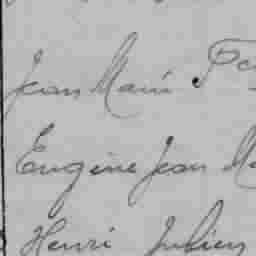 Jean Marie
Eugène Jean
Henri Julien